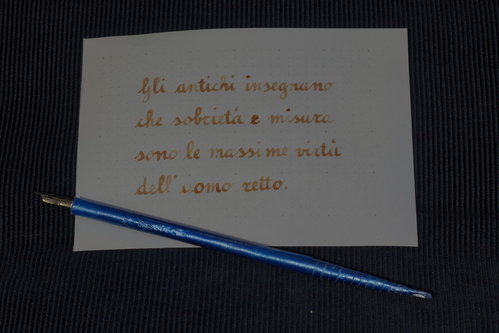 Gli antichi insegnano
che sobrietá e misura
sono le massime virtú
dell'uomo retto.